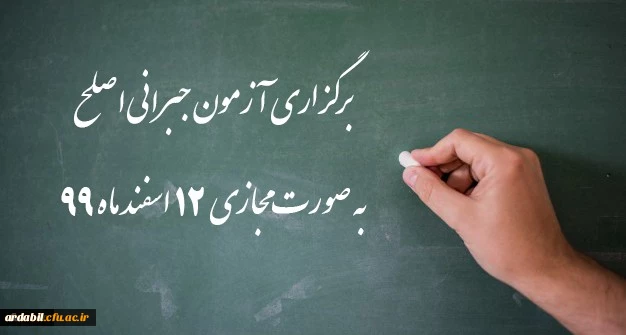 برگزاری آزمون جبرانی اصلح
به صورت مجازی ۱۲ اسفند ماه ۹۹
ardabil.cfu.ac.ir